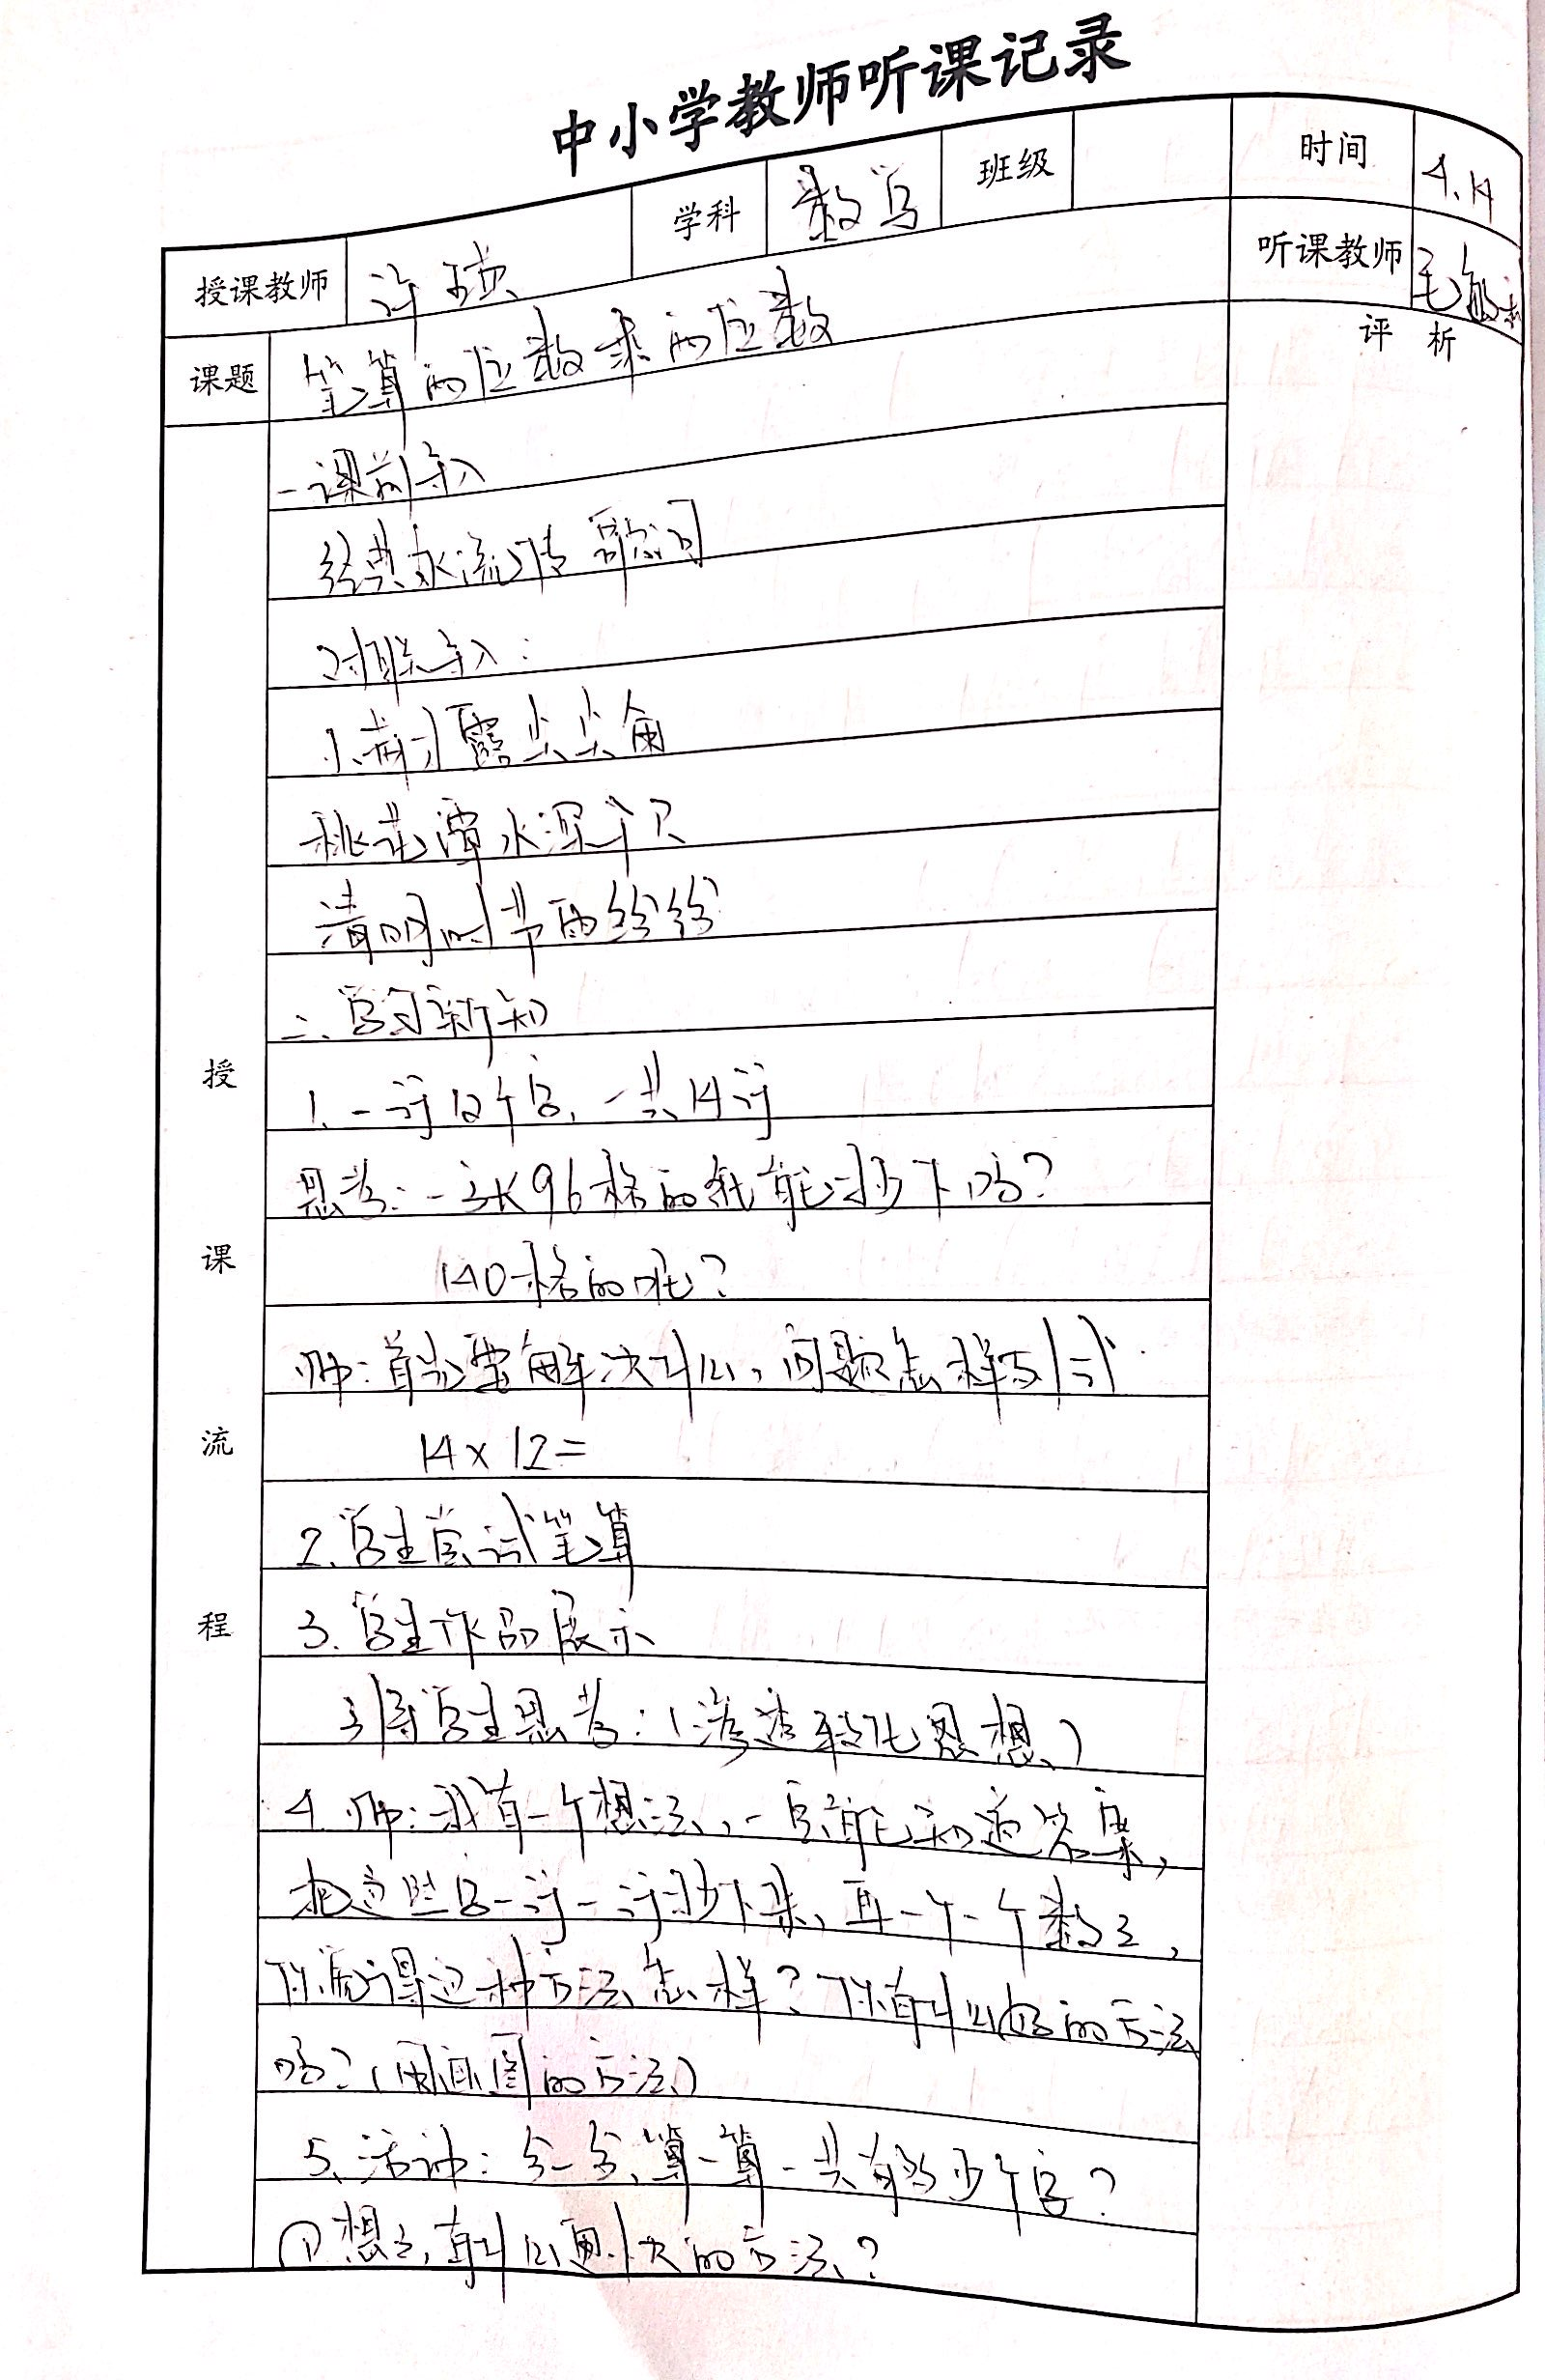 中小学教师听课记录
授课教师 许瑛 学科 数学 班级 时间 4.14
听课教师 毛
课题 笔算两位数乘两位数 评析
授课流程
一课前导入
经典永流传 歌词
对联导入:
小荷才露尖尖角
桃花潭水深千尺
清明时节雨纷纷
二、学习新知
1. 一行12个字,一共14行
思考:一张96格的纸能抄下吗?
140格的呢?
师:首先要解决什么问题怎样列式
14×12=
2.学生尝试笔算
3.学生作品展示
引导学生思考:(渗透转化思想)
4.师:我有一个想法,一定能知道答案,
把这些字一行一行抄下来,再一个一个数,
你觉得这种方法怎样?你有什么好的方法
吗?(用画图的方法)
5、活动:分一分,算一算一共有多少个字?
①想,有什么更快的方法?